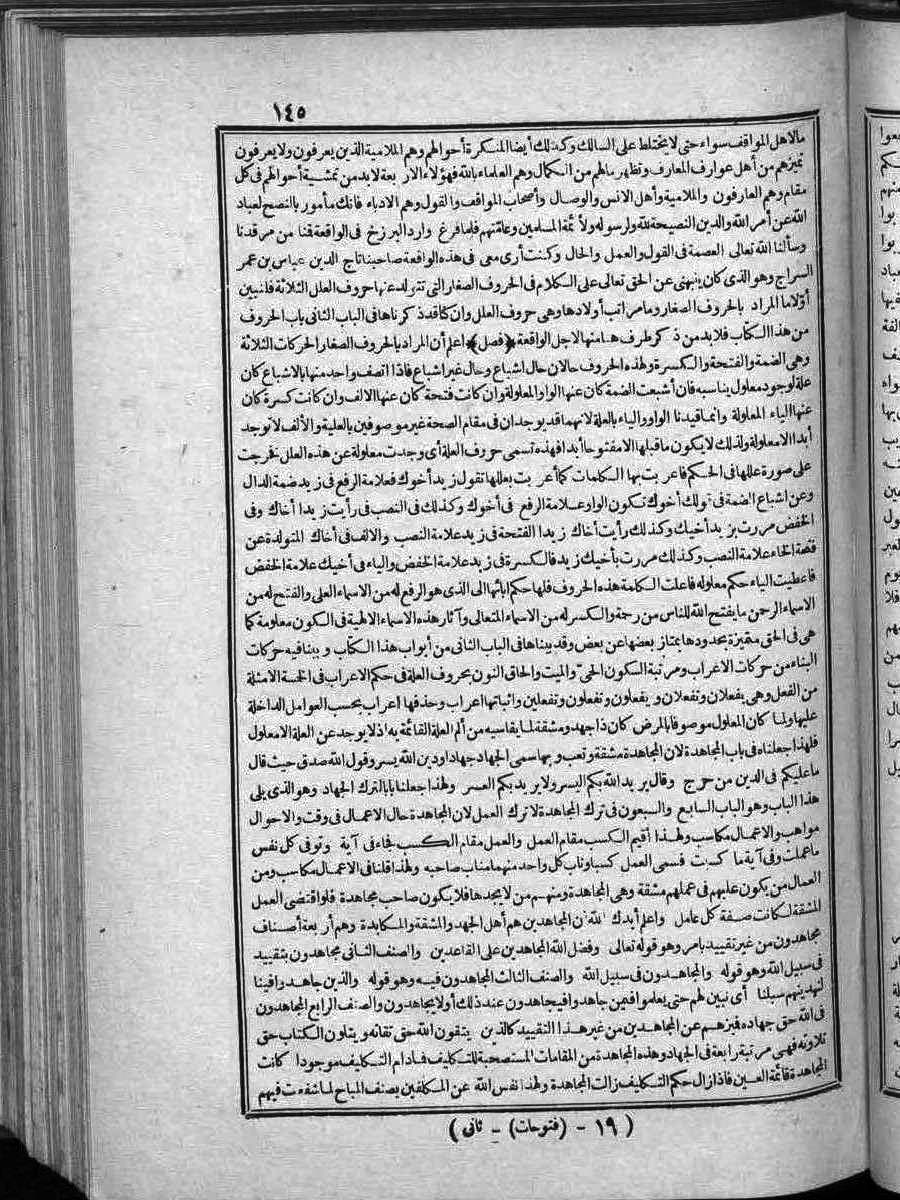 ١٤٥
مالاهل المواقف سواء حتى لايختلط على السالك وكذلك أيضا المنكرة أحوالهم وهم الملامية الذين يعرفون ولا يعرفون
تميزهم من أهل عوارف المعارف وتظهر مالهم من الكمال وهم العلماء بالله فهؤلاء الاربعة لابد من تمشية أحوالهم فى كل
مقام وهم العارفون والملامية وأهل الانس والوصال وأصحاب المواقف والقول وهم الادباء فانك مأمور بالنصح لعباد
الله عن أمر الله والدين النصيحة لله ولرسوله ولأئمة المسلمين وعامّتهم فلما فرغ وارد البرزخ فى الواقعة قمنا من مرقدنا
وسألنا الله تعالى العصمة فى القول والعمل والحال وكنت أرى معى فى هذه الواقعة صاحبنا تاج الدين عباس بن عمر
السراج وهو الذى كان ينبهنى عن الحق تعالى على الكلام فى الحروف الصغار التى تتولد عنها حروف العلل الثلاثة فلنبين
أوّلا ما المراد بالحروف الصغار ومامراتب أولادها وهى حروف العلل وان كنا قد ذكرناها فى الباب الثانى باب الحروف
من هذا الكتاب فلابد من ذكر طرف هنا منها لاجل الواقعة ﴿فصل﴾ اعلم أن المراد بالحروف الصغار الحركات الثلاثة
وهى الضمة والفتحة والكسرة ولهذه الحروف حالان حال اشباع وحال غير اشباع فاذا اتصف واحد منها بالاشباع كان
علة لوجود معلول يناسبه فان أشبعت الضمة كان عنها الواو المعلولة وان كانت فتحة كان عنها الالف وان كانت كسرة كان
عنها الياء المعلولة وانما قيدنا الواو والياء بالعلة لانهما قد يوجدان فى مقام الصحة غير موصوفين بالعلية والألف لا توجد
أبدا الا معلولة ولذلك لا يكون ماقبلها الا مفتوحا أبدا فهذه تسمى حروف العلة أى وجدت معلولة عن هذه العلل نخرجت
على صورة عللها فى الحكم فاعربت بها الكلمات كما أعربت بعللها تقول زيد أخوك فعلامة الرفع فى زيد ضمة الدال
وعن اشباع الضمة فى قولك أخوك تكون الواو علامة الرفع فى أخوك وكذلك فى النصب فى رأيت زيدا أخاك وفى
الخفض مررت بزيد أخيك وكذلك رأيت أخاك زيدا الفتحة فى زيد علامة النصب والالف فى أخاك المتولدة عن
فتحة الخاء علامة النصب وكذلك مررت بأخيك زيد فالكسرة فى زيد علامة الخفض والياء فى أخيك علامة الخفض
فاعطيت الياء حكم معلوله فاعلت الكلمة هذه الحروف فلها حكم ابائها الى الذى هو الرفع له من الاسماء العلى والفتح له من
الاسماء الرحمن ما يفتح الله للناس من رحمة والكسر له من الاسماء المتعالى وآثار هذه الاسماء الالهية فى الكون معلومة كما
هى فى الحق متميزة بحدودها يمتاز بعضها عن بعض وقد بيناها فى الباب الثانى من أبواب هذا الكتاب وبينا فيه حركات
البناء من حركات الاعراب ومرتبة السكون الحىّ والميت والحاق النون بحروف العلة فى حكم الاعراب فى الخمسة الامثلة
من الفعل وهى يفعلان وتفعلان ويفعلون وتفعلون وتفعلين واثباتها اعراب وحذفها اعراب بحسب العوامل الداخلة
عليها ولما كان المعلول موصوفا بالمرض كان ذا جهد ومشقة لما يقاسيه من ألم العلة القائمة به اذ لا يوجد عن العلة الا معلول
فلهذا جعلناه فى باب المجاهدة لان المجاهدة مشقة وتعب وبها سمى الجهاد جهادا ودين الله يسر وقول الله صدق حيث قال
ما عليكم فى الدين من حرج وقال يريد الله بكم اليسر ولا يريد بكم العسر ولهذا جعلنا بابا لترك الجهاد وهو الذى يلى
هذا الباب وهو الباب السابع والسبعون فى ترك المجاهدة لا ترك العمل لان المجاهدة حال الاعمال فى وقت والاحوال
مواهب والاعمال مكاسب ولهذا أقيم الكسب مقام العمل والعمل مقام الكسب فجاء فى آية وتوفى كل نفس
ما عملت وفى آية ما كسبت فسمى العمل كسبا وناب كل واحد منهما مناب صاحبه ولهذا قلنا فى الاعمال مكاسب ومن
العمال من يكون عليهم فى عملهم مشقة وهى المجاهدة ومنهم من لا يجدها فلا يكون صاحب مجاهدة فلو اقتضى العمل
المشقة لكانت صفة كل عامل واعلم أيدك الله أن المجاهدين هم أهل الجهد والمشقة والمكابدة وهم أربعة أصناف
مجاهدون من غير تقييد بامر وهو قوله تعالى وفضل الله المجاهدين على القاعدين والصنف الثانى مجاهدون بتقييد
فى سبيل الله وهو قوله والمجاهدون فى سبيل الله والصنف الثالث المجاهدون فيه وهو قوله والذين جاهدوا فينا
لنهدينهم سبلنا أى نبين لهم حتى يعلموا فيمن جاهدوا فيجاهدون عند ذلك أولا يجاهدون والصنف الرابع المجاهدون
فى الله حق جهاده فميزهم عن المجاهدين من غير هذا التقييد كالذين يتقون الله حق تقاته ويتلون الكتاب حق
تلاوته فهى مرتبة رابعة فى الجهاد وهذه المجاهدة من المقامات المستصحبة للتكليف فادام التكليف موجودا كانت
المجاهدة قائمة العين فاذا زال حكم التكليف زالت المجاهدة ولهذا نفس الله عن المكلفين بصنف المباح لما شفعت فيهم
( ١٩ - (فتوحات) - ثانى )